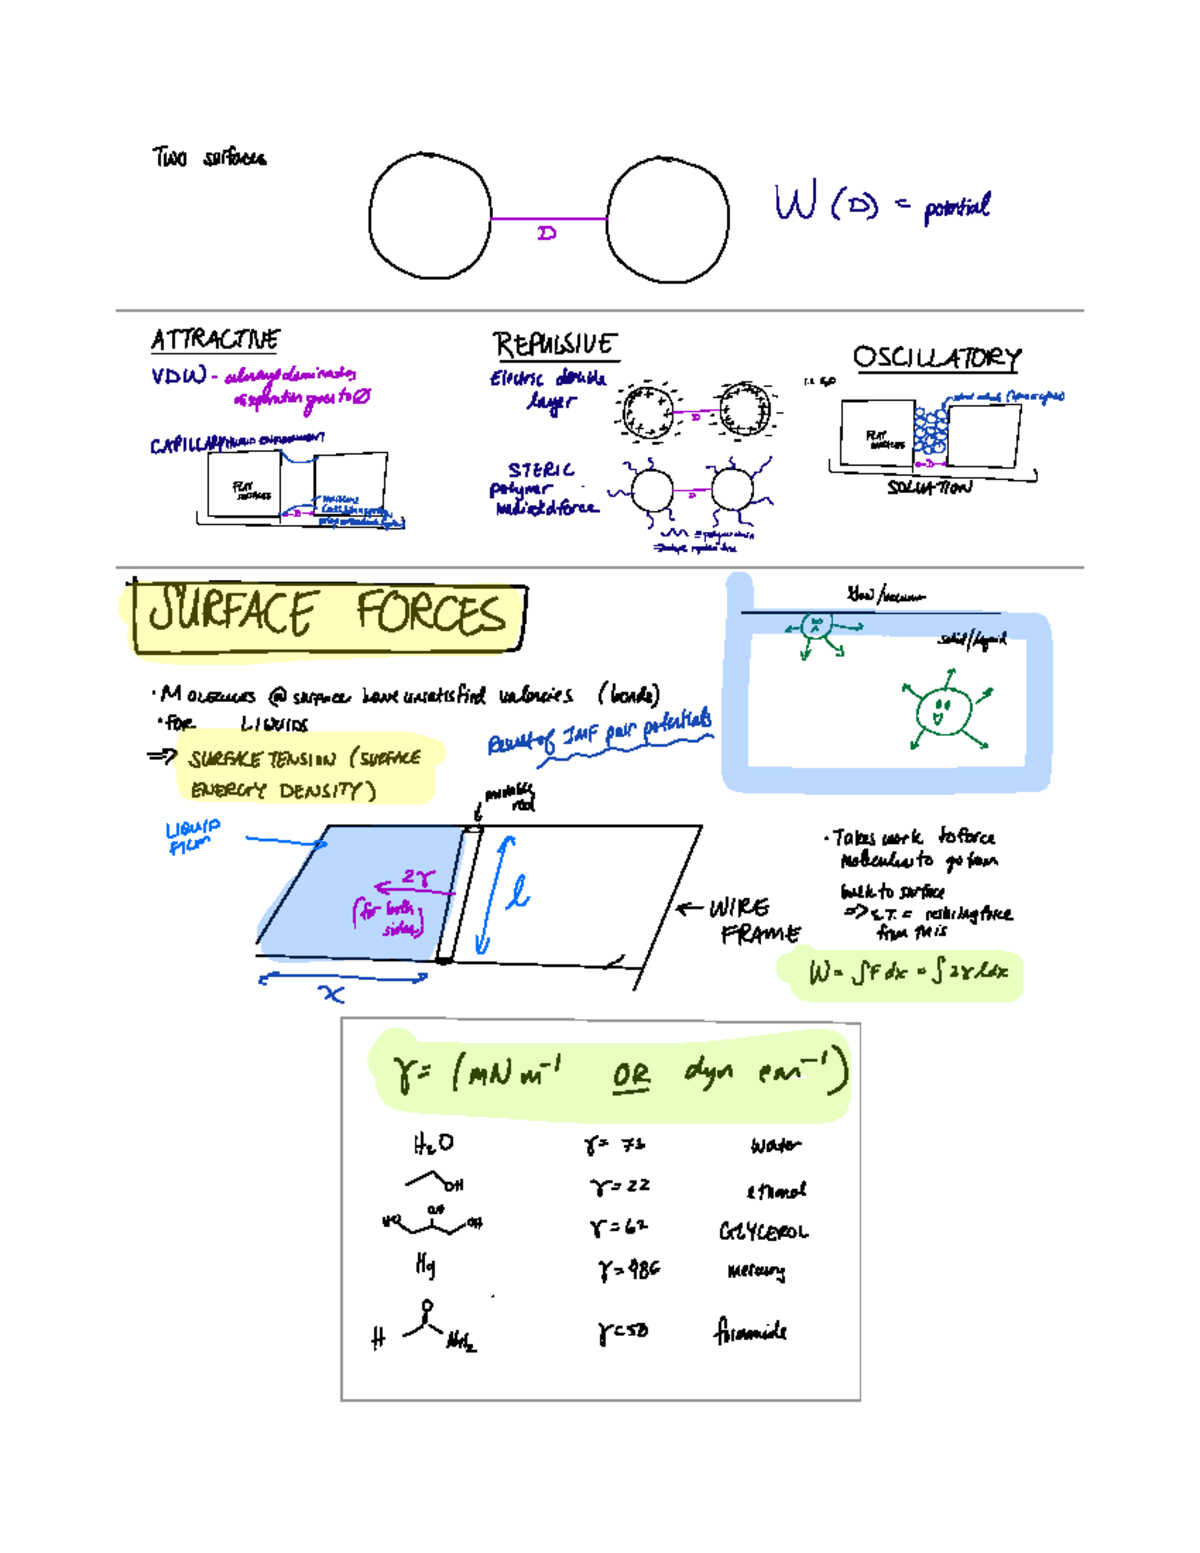 Two surfaces
D
W (D) = potential
ATTRACTIVE
VDW - always dominates
as separation goes to 0
CAPILLARY/HUMID ENVIRONMENT
FLAT
SURFACES
D
REPULSIVE
Electric double
layer
D
STERIC
polymer
mediated force
D
OSCILLATORY
FLAT
SURFACES
D
SOLUTION
SURFACE FORCES
Gas/vacuum
solid/liquid
• MOLECULES @ surface have unsatisfied valencies (bonds)
• FOR LIQUIDS
⇒ SURFACE TENSION (SURFACE
ENERGY DENSITY)
Result of IMF pair potentials
movable
rod
LIQUID
FILM
2γ
(for both
sides)
l
x
← WIRE
FRAME
• Takes work to force
molecules to go from
bulk to surface
⇒ S.T. = restoring force
from this
W = ∫F dx = ∫2γldx
γ = (mN m⁻¹ OR dyn cm⁻¹)
H₂O γ = 73 water
OH γ = 22 ethanol
HO OH OH γ = 62 GLYCEROL
Hg γ = 486 mercury
H O NH₂ γ = 58 formamide